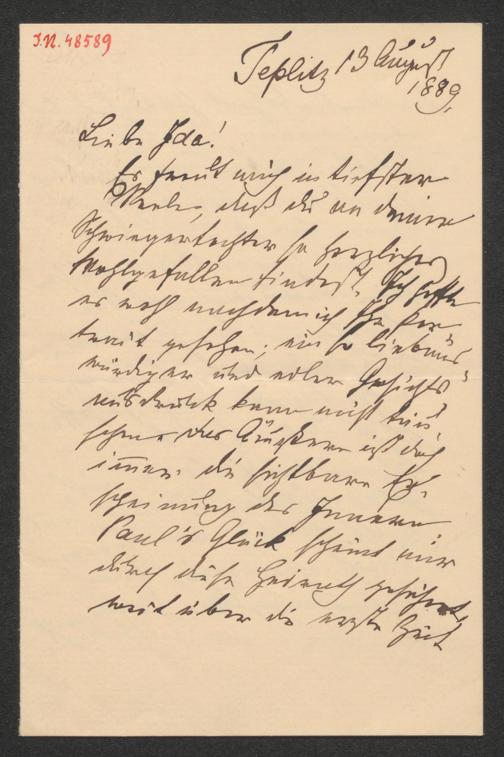 J.N. 48589
Teplitz 13 August
1889.
Liebe Ida!
Es freut mich in tiefster
Seele, daß du an deiner
Schwiegertochter so herzliches
Wohlgefallen findest. Ich hoffte
es wohl nachdem ich ihr Por-
trait gesehen; ein so liebens-
würdiger und edler Gesichts-
ausdruck kann nicht täu-
schen. Das Äußere ist doch
immer die sichtbare Er-
scheinung des Innern
Paul's Glück scheint mir
durch diese Heirath gesichert,
weit über die erste Zeit